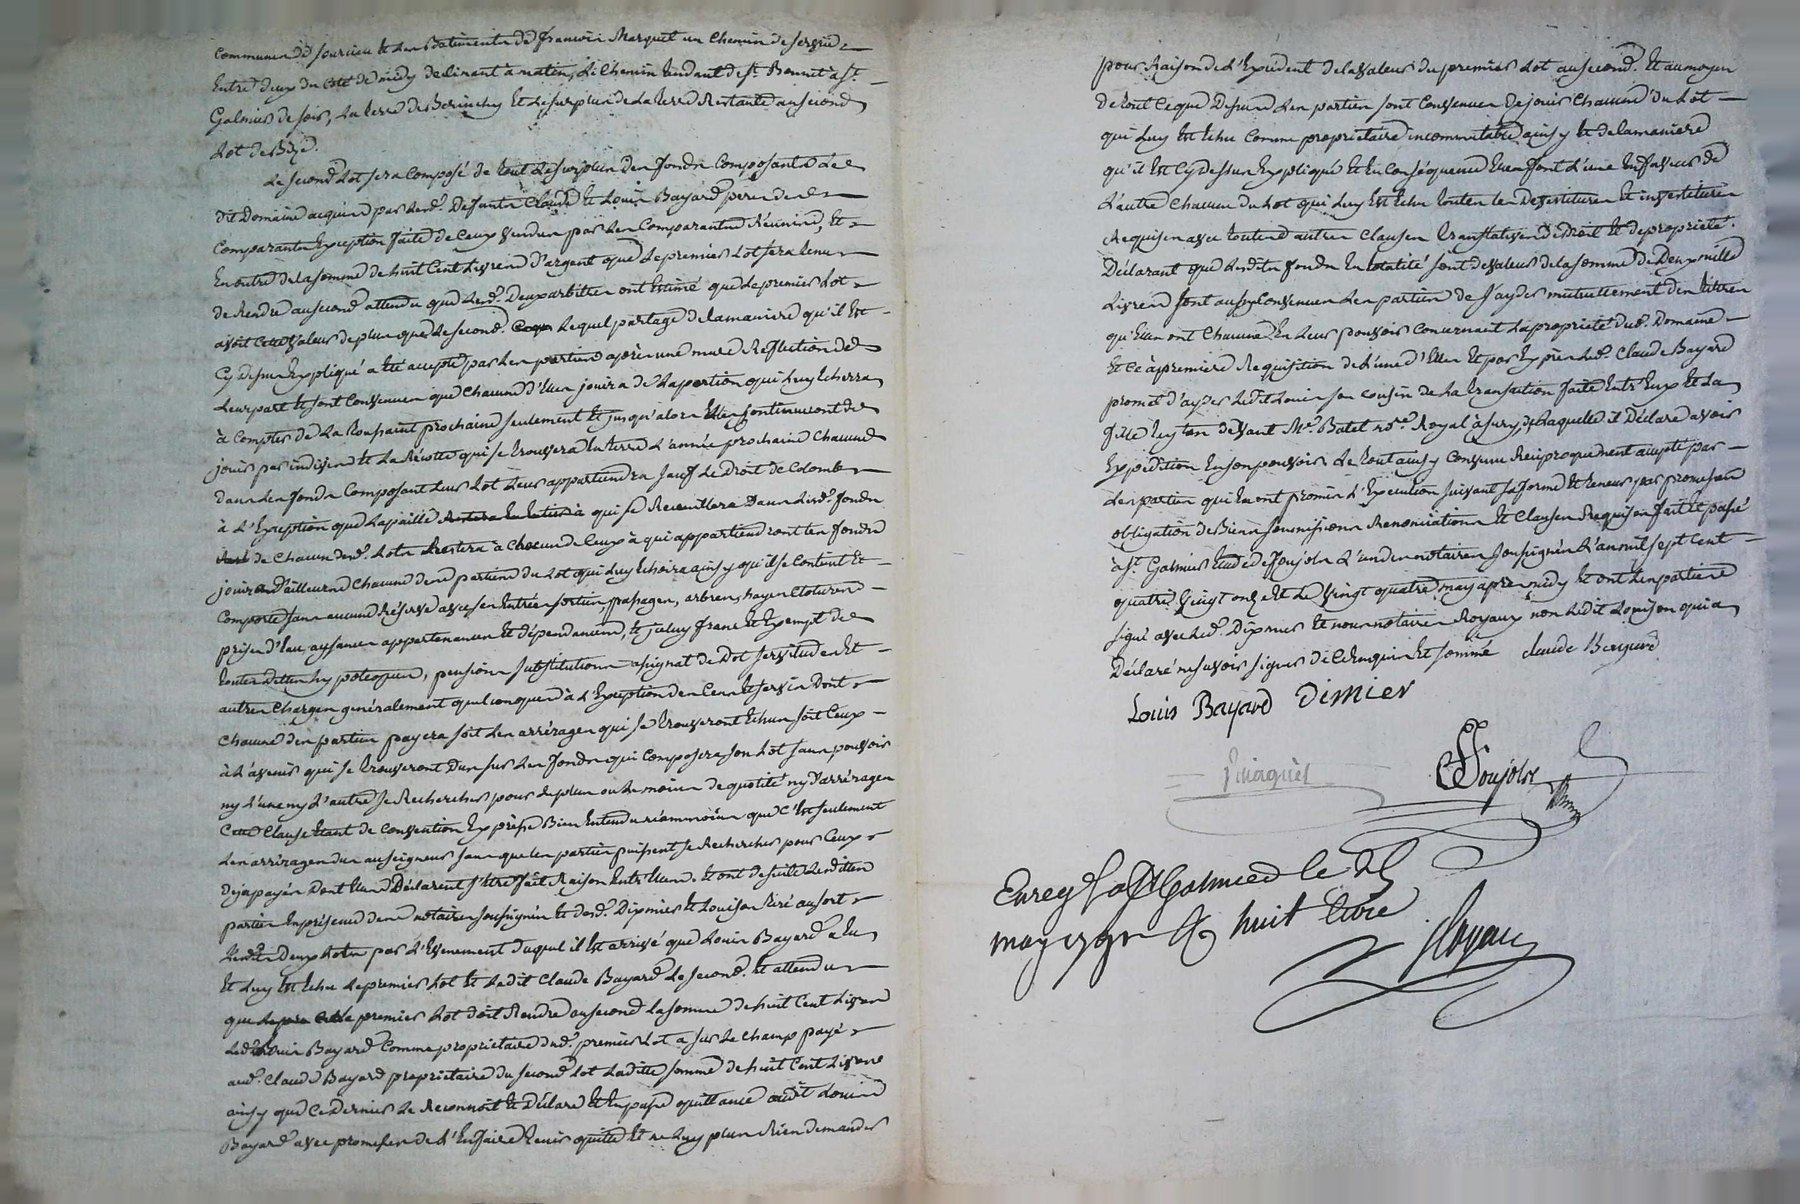 communes de Sourcieu et les Batiments de francois Marquet un chemin de service
Entre deux du coté de midy declinant à matin, Le chemin tendant de St. Bonnet à St.
Galmier de soir, La terre de et Le surplus de La terre Restante au second
Lot de Bize.
Le second Lot sera composé de tout Le surplus des fonds composant Le
dit Domaine acquis par lesd. Defunts Claude et Louis Bayard peres des
comparants Exception faite de ceux vendus par Les comparants Réunis, Et
En outre de la somme de huit cent Livres d'argent que Le premier Lot sera tenu
de Rendre au second attendu que Lesd. Deux arbitres ont Estimé que Le premier Lot
avoit cette valeur de plus que Le second. Lequel partage de la maniere qu'il Est
cy dessus Expliqué a été accepté par Les parties après une mure Reflection de
Leur part et sont convenus que chacun d'Eux jouira de La portion qui Luy Echerra
à compter de La Toussaint prochaine seulement Et jusqu'alors Ils continueront de
jouir par indivis et La Récolte qui se trouvera En terre L'année prochaine chacun
dans Les fonds composant Leur Lot Leur appartiendra sauf Le Droit de Colomb
à L'Exception que La paille qui se Recueillera Dans Lesd. fonds
de chacun desd. Lots Restera à chacun de ceux à qui appartiendront les fonds
jouira d'ailleurs chacune des parties du Lot qui Luy Echoira ainsy qu'il se contient Et
comporte sans aucune Réserve avec ses Entrées sorties, passages, arbres, hayes clotures
prises d'Eau, aysances appartenances Et dépendances, Et iceluy franc Et Exempt de
toutes Dettes hypoteques, pensions substitutions assignat de Dot servitudes Et
autres charges generalement quelconques à L'Exception des Cens et servis Dont
chacune des parties payera soit Les arrérages qui se trouveront Echus soit ceux
à L'avenir qui se trouveront Dus sur Les fonds qui composera son Lot sans pouvoir
ny L'une ny L'autre se Rechercher pour Le plus ou Le moins de quotité ny D'arrérages
Cette Clause Etant de convention Expresse Bien Entendu néanmoins que c'Est seulement
Les arrérages dus au seigneur sans que Les parties puissent se Rechercher pour Ceux
deja payés Dont Elles Déclarent s'être fait Raison Entr'Elles. Et ont de suite Lesdites
parties En présence des notaires soussignés Et desd. Dixmier Et Louison tiré au sort
Lesdits Deux Lots par L'Evenement duquel il Est arrivé que Louis Bayard a Eu
Et Luy Est Echu Le premier Lot Et Ledit Claude Bayard Le second. Et attendu
que Le premier Lot doit Rendre au second La somme de huit Cent Livres
Ledit Louis Bayard comme proprietaire dud. premier Lot a sur Le champ payé
aud. Claude Bayard proprietaire du second Lot Ladite somme de huit Cent Livres
ainsy que ce Dernier Le Reconnoit Et Déclare Et En passe quittance audit Louis
Bayard avec promesse de L'En faire tenir quitte Et ne Luy plus Rien demander
pour Raison de L'Excedent de la valeur du premier Lot au second. Et au moyen
de tout ce que Dessus Les parties sont convenues De jouir chacune du Lot
qui Luy Est Echu comme proprietaire incommutable ainsy Et de la maniere
qu'il Est Cy dessus Expliqué Et En Conséquence Elles font L'une En faveur de
L'autre chacune du Lot qui Luy Est Echu toutes Les Devestitures Et investitures
Requises avec toutes autres clauses translatives de Droit Et de proprieté.
Déclarant que Lesdits fonds En totalité sont de valeur de la somme de Deux mille
Livres sont aussy convenues Les parties de s'ayder mutuellement des titres
qu'Elles ont chacune En Leur pouvoir concernant La proprieté dud. Domaine
Et ce à premiere Requisition de L'une d'Elles Et par Exprès Led. Claude Bayard
promet d'ayder Ledit Louis son cousin de La transaction faite Entr'Eux Et La
devant Me. Batet nore. Royal à Sury, de Laquelle il Déclare avoir
Expedition En son pouvoir Le tout ainsy convenu Reciproquement accepté par
Les parties qui En ont promis L'Execution suivant sa forme Et teneur par promesses
obligation de Biens soumissions Renonciations Et clauses Requises fait Et passé
à St. Galmier Etude de Soujols L'un des notaires soussignés L'an mil sept cent
quatre vingt onze Et Le vingt quatre may après midy Et ont Les parties
signé avec Led. Dixmier Et nous notaires Royaux non Ledit Louison qui a
Déclaré ne savoir signer de ce Enquis Et sommé Claude Bayard
Louis Bayard Dimier
Pinaquet Soujols
Enreg à St Galmier le 25
may 1791 R huit livre